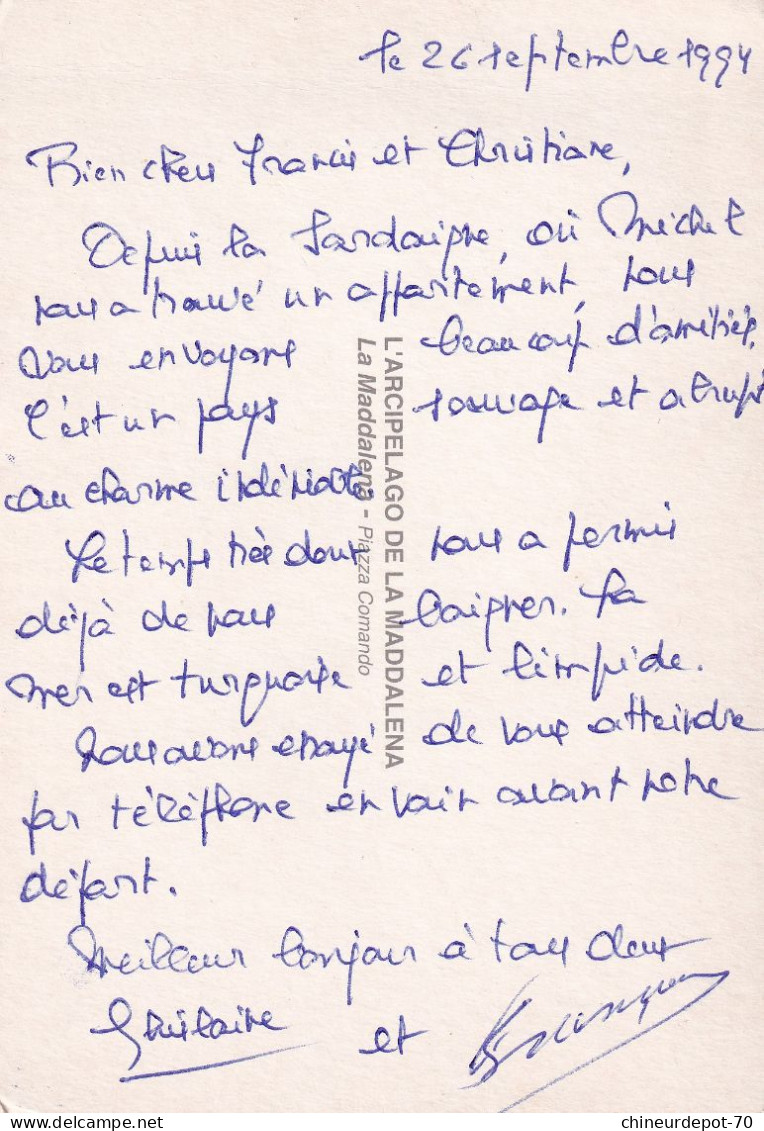 le 26 septembre 1994
Bien chers Francis et Christiane,
Depuis la Sardaigne, où Michel
nous a trouvé un appartement, nous
vous envoyons beaucoup d'amitiés,
C'est un pays sauvage et abrupt
au charme indéniable.
Le temps très doux nous a permis
déjà de nous baigner. La
mer est turquoise et limpide.
Nous avons essayé de vous atteindre
par téléphone en vain avant notre
départ.
Meilleur bonjour à tous deux
Ghislaine et
L'ARCIPELAGO DE LA MADDALENA
La Maddalena - Piazza Comando
chineurdepot-70